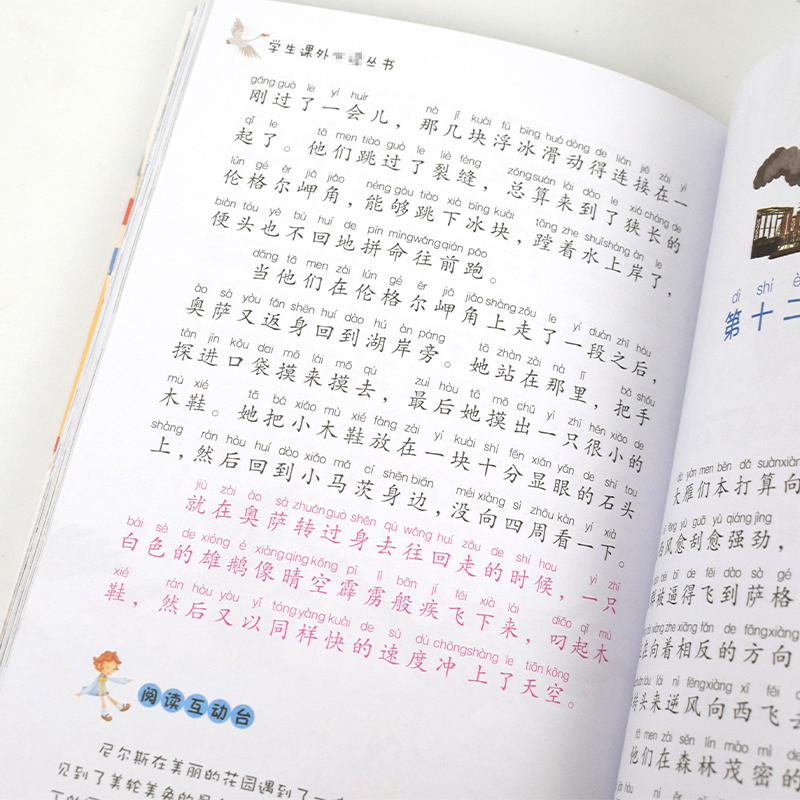 学生课外 丛书
gāng guò le yí huìr nà jǐ kuài fú bīng huá dòng de lián jiē zài yì
刚过了一会儿，那几块浮冰滑动得连接在一
qǐ le tā men tiào guò le liè fèng zǒng suàn lái dào le xiá cháng de
起了。他们跳过了裂缝，总算来到了狭长的
lún gé ěr jiǎ jiǎo néng gòu tiào xià bīng kuài tāng zhe shuǐ shàng àn le
伦格尔岬角，能够跳下冰块，蹚着水上岸了，
biàn tóu yě bù huí de pīn mìng wǎng qián pǎo
便头也不回地拼命往前跑。
dāng tā men zài lún gé ěr jiǎ jiǎo shàng zǒu le yí duàn zhī hòu
当他们在伦格尔岬角上走了一段之后，
ào sà yòu fǎn shēn huí dào hú àn páng tā zhàn zài nà lǐ bǎ shǒu
奥萨又返身回到湖岸旁。她站在那里，把手
tàn jìn kǒu dai mō lái mō qù zuì hòu tā mō chū yì zhī hěn xiǎo de
探进口袋摸来摸去，最后她摸出一只很小的
mù xié tā bǎ xiǎo mù xié fàng zài yí kuài shí fēn xiǎn yǎn de shí tou
木鞋。她把小木鞋放在一块十分显眼的石头
shàng rán hòu huí dào xiǎo mǎ cí shēn biān méi xiàng sì zhōu kàn yí xià
上，然后回到小马茨身边，没向四周看一下。
jiù zài ào sà zhuǎn guò shēn qù wǎng huí zǒu de shí hou yì zhī
就在奥萨转过身去往回走的时候，一只
bái sè de xióng é xiàng qíng kōng pī lì bān jí fēi xià lái diāo qǐ mù
白色的雄鹅像晴空霹雳般疾飞下来，叼起木
xié rán hòu yòu yǐ tóng yàng kuài de sù dù chōng shàng le tiān kōng
鞋，然后又以同样快的速度冲上了天空。
阅读互动台
尼尔斯在美丽的花园遇到了一
见到了美轮美奂的
dì shí
第十二
dà yàn men běn dǎ suàn xiàng
大雁们本打算向
风愈刮愈强劲，
被逼得飞到萨格
向着相反的方向
转头来逆风向西飞去
tā men zài sēn lín mào mì de
他们在森林茂密的